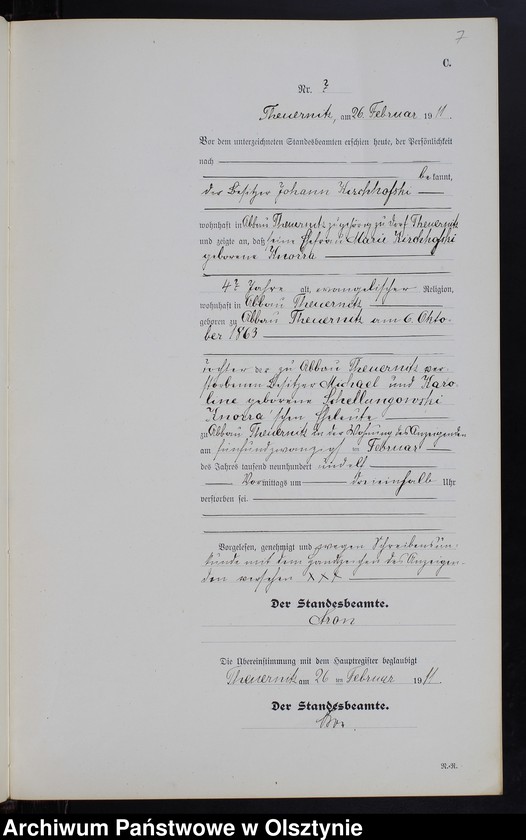 7
C.
Nr. 7
Theuernitz, am 26. Februar 1911.
Vor dem unterzeichneten Standesbeamten erschien heute, der Persönlichkeit
nach
bekannt,
der Besitzer Johann Kirschhofski
wohnhaft in Abbau Theuernitz zugehörig zu Dorf Theuernitz
und zeigte an, daß seine Ehefrau Marie Kirschhofski
geborene Knorra
47 Jahre alt, evangelischer Religion,
wohnhaft in Abbau Theuernitz
geboren zu Abbau Theuernitz am 6. Okto-
ber 1863
Tochter der zu Abbau Theuernitz ver-
storbenen Besitzer Michael und Karo-
line geborene Schellungowski
Knorra'schen Eheleute
zu Abbau Theuernitz in der Wohnung des Anzeigenden
am fünfundzwanzigsten Februar
des Jahres tausend neunhundert und elf
Vormittags um dreieinhalb Uhr
verstorben sei.
Vorgelesen, genehmigt und wegen Schreibensun-
kunde mit dem Handzeichen des Anzeigen-
den versehen XXX
Der Standesbeamte.
Die Übereinstimmung mit dem Hauptregister beglaubigt
Theuernitz am 26 ten Februar 1911.
Der Standesbeamte.
N.-R.
Archiwum Państwowe w Olsztynie